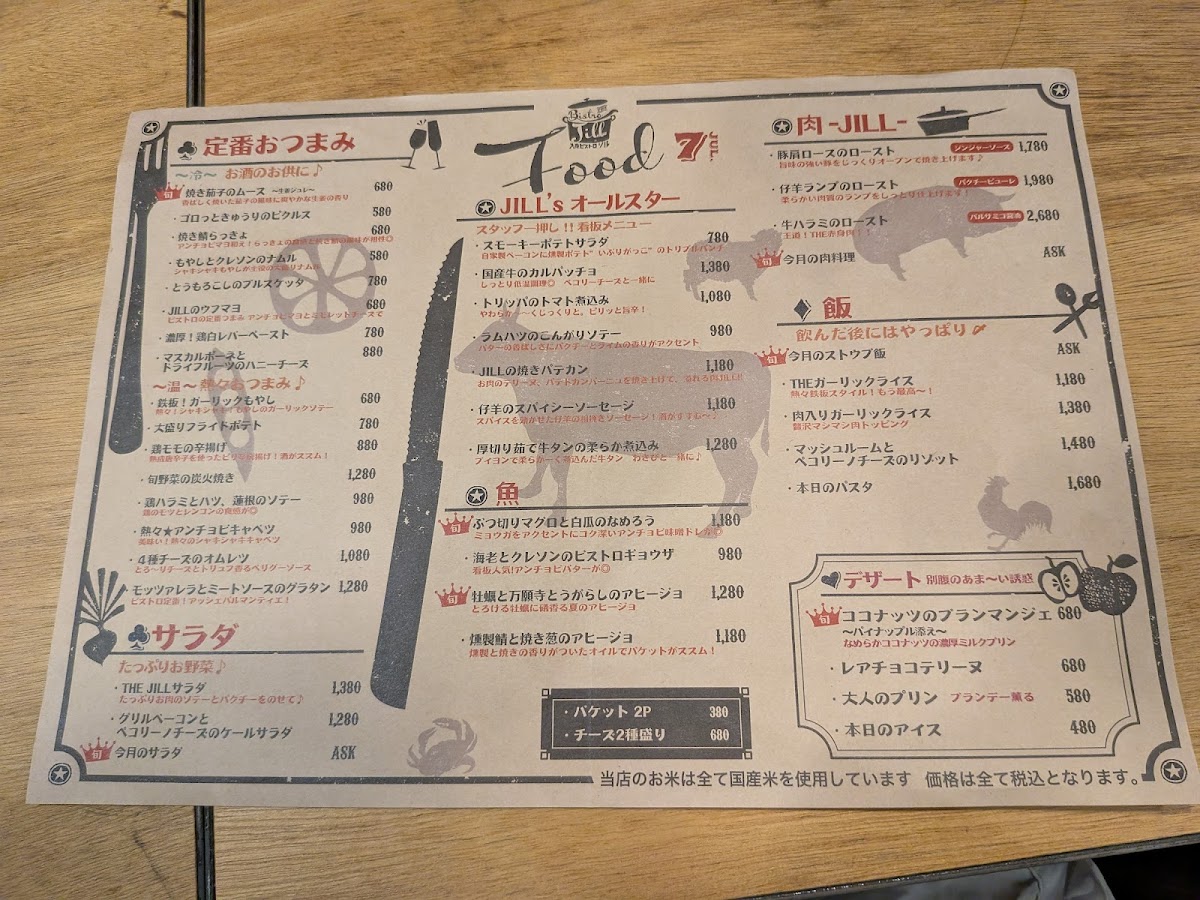 定番おつまみ
〜冷〜 お酒のお供に♪
旬 焼き茄子のムース 〜生姜ジュレ〜 680
香ばしく焼いた茄子の風味に爽やかな生姜の香り
・ゴロっときゅうりのピクルス 580
・焼き鯖らっきょ 680
・もやしとクレソンのナムル 580
シャキシャキもやしが主役の大盛りナムル
・とうもろこしのブルスケッタ 780
・JILLのウフマヨ 680
ビストロの定番つまみ アンチョビマヨとミモレットチーズで
・濃厚！鶏白レバーペースト 780
・マスカルポーネと
ドライフルーツのハニーチーズ 880
〜温〜 熱々おつまみ♪
・鉄板！ガーリックもやし 680
熱々！シャキシャキもやしのガーリックソテー
・大盛りフライドポテト 780
・鶏モモの辛揚げ 880
熟成唐辛子を使ったピリ辛唐揚げ！酒がススム！
・旬野菜の炭火焼き 1,280
・鶏ハラミとハツ、蓮根のソテー 980
鶏のモツとレンコンの食感が◎
・熱々★アンチョビキャベツ 980
美味い！熱々のシャキシャキキャベツ
・4種チーズのオムレツ 1,080
とろ〜りチーズとトリュフ香るペリグーソース
・モッツァレラとミートソースのグラタン 1,280
ビストロ定番！アッシェパルマンティエ！
サラダ
たっぷりお野菜♪
・THE JILLサラダ 1,380
たっぷりお肉のソテーとパクチーをのせて♪
・グリルベーコンと
ペコリーノチーズのケールサラダ 1,280
旬 今月のサラダ ASK
Bistro
Jill
大衆ビストロ ジル
Food
7 JUL.
JILL's オールスター
スタッフ一押し!! 看板メニュー
・スモーキーポテトサラダ 780
自家製ベーコンに燻製ポテト"いぶりがっこ"のトリプルパンチ
・国産牛のカルパッチョ 1,380
しっとり低温調理◎ ペコリーチーズと一緒に
・トリッパのトマト煮込み 1,080
やわらか〜くじっくりと。ピリッと旨辛！
・ラムハツのこんがりソテー 980
バターの香ばしさにパクチーとライムの香りがアクセント
・JILLの焼きパテカン 1,180
お肉のテリーヌ、パテドカンパーニュを焼き上げて、溢れる肉JILL!!
・仔羊のスパイシーソーセージ 1,180
・厚切り茹で牛タンの柔らか煮込み 1,280
ブイヨンで柔らか〜く煮込んだ牛タン わさびと一緒に♪
魚
旬 ぶつ切りマグロと白瓜のなめろう 1,180
ミョウガをアクセントにコク深いアンチョビ味噌ドレが◎
・海老とクレソンのビストロギョウザ 980
看板人気!アンチョビバターが◎
旬 牡蠣と万願寺とうがらしのアヒージョ 1,280
とろける牡蠣に磯香る夏のアヒージョ
・燻製鯖と焼き葱のアヒージョ 1,180
燻製と焼きの香りがついたオイルでバケットがススム！
・バケット 2P 380
・チーズ2種盛り 680
肉 -JILL-
・豚肩ロースのロースト ジンジャーソース 1,780
旨味の強い豚をじっくりオーブンで焼き上げます♪
・仔羊ランプのロースト パクチーピューレ 1,980
柔らかい肉質のランプをしっとり仕上げます！
・牛ハラミのロースト バルサミコ醤油 2,680
王道！THE赤身肉！！
旬 今月の肉料理 ASK
飯
飲んだ後にはやっぱり
旬 今月のストウブ飯 ASK
・THEガーリックライス 1,180
熱々鉄板スタイル！もう最高〜！
・肉入りガーリックライス 1,380
贅沢マシマシ肉トッピング
・マッシュルームと
ペコリーノチーズのリゾット 1,480
・本日のパスタ 1,680
デザート 別腹のあま〜い誘惑
旬 ココナッツのブランマンジェ 680
〜パイナップル添え〜
なめらかココナッツの濃厚ミルクプリン
・レアチョコテリーヌ 680
・大人のプリン ブランデー薫る 580
・本日のアイス 480
当店のお米は全て国産米を使用しています 価格は全て税込となります。